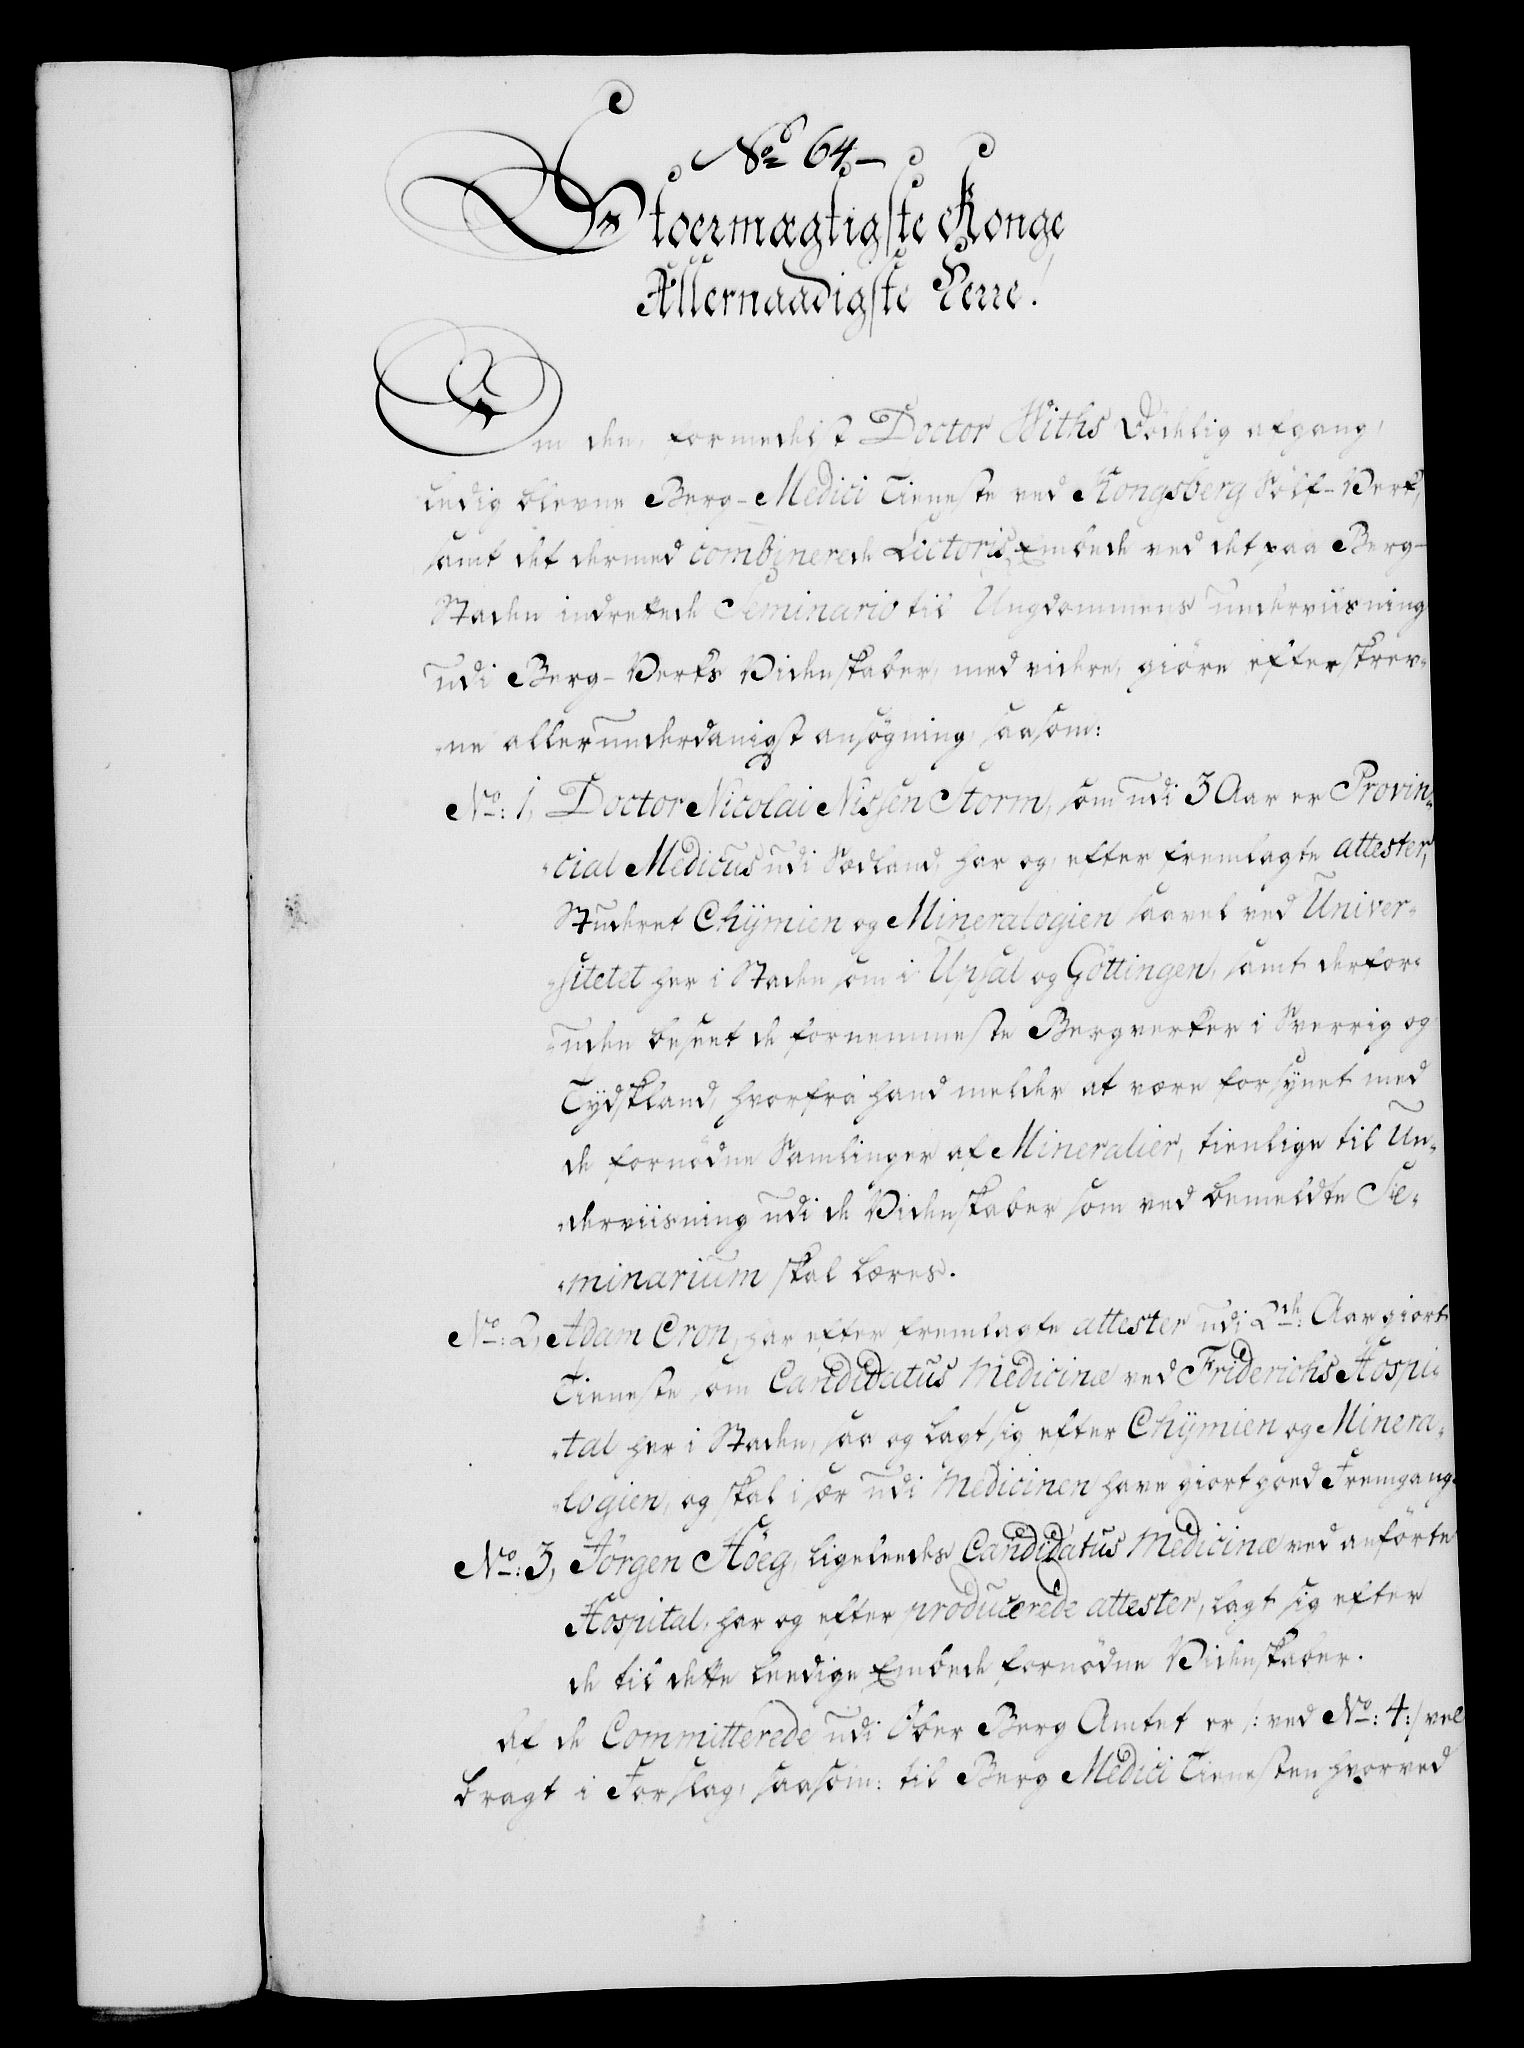 No 64-
Stoermægtigste Konge
Allernaadigste Herre!
Om den, formedelst Doctor Withs Dödelig afgang,
ledig blevne Berg-Medici Tieneste ved Kongsberg Sölf-Verk,
samt det dermed combinerede Lectoris Embede ved det paa Berg-
Staden indrettede Seminario til Ungdommens underviisning
udi Berg-Verks Videnskaber, med videre, giöre efterskrev-
ne allerunderdanigst ansögning, saasom:
No: 1, Doctor Nicolai Nissen Storm, som udi 3 Aar er Provin-
cial Medicus udi Nodland, har og, efter fremlagte attester,
Studeret Chÿmien og Mineralogien saavel ved Univer-
sitetet her i Staden som i Upsal og Göttingen, samt derfor-
uden beseet de fornemmeste Bergverker i Sverrig og
Tydskland, hvorfra hand melder at være forsynet med
de fornödne Samlinger af Mineralier, tienlige til Un-
derviisning udi de Videnskaber som ved bemeldte Se-
minarium skal læres.
No: 2, Adam Cron, har efter fremlagte attester udi 2de: Aar giort
Tieneste som Candidatus Medicinæ ved Friderichs Hospi-
tal her i Staden, saa og lagt sig efter Chÿmien og Minera-
logien, og skal i sær udi Medicinen have giort goed Fremgang.
No: 3, Jörgen Höeg, ligeledes Candidatus Medicinæ ved anförte
Hospital, har og efter producerede attester, lagt sig efter
de til dette leedige Embede fornödne Videnskaber.
Af de Committerede udi Ober Berg Amtet er /: ved No: 4:/ vel
bragt i Forslag, saasom: til Berg Medici Tienesten hvorved